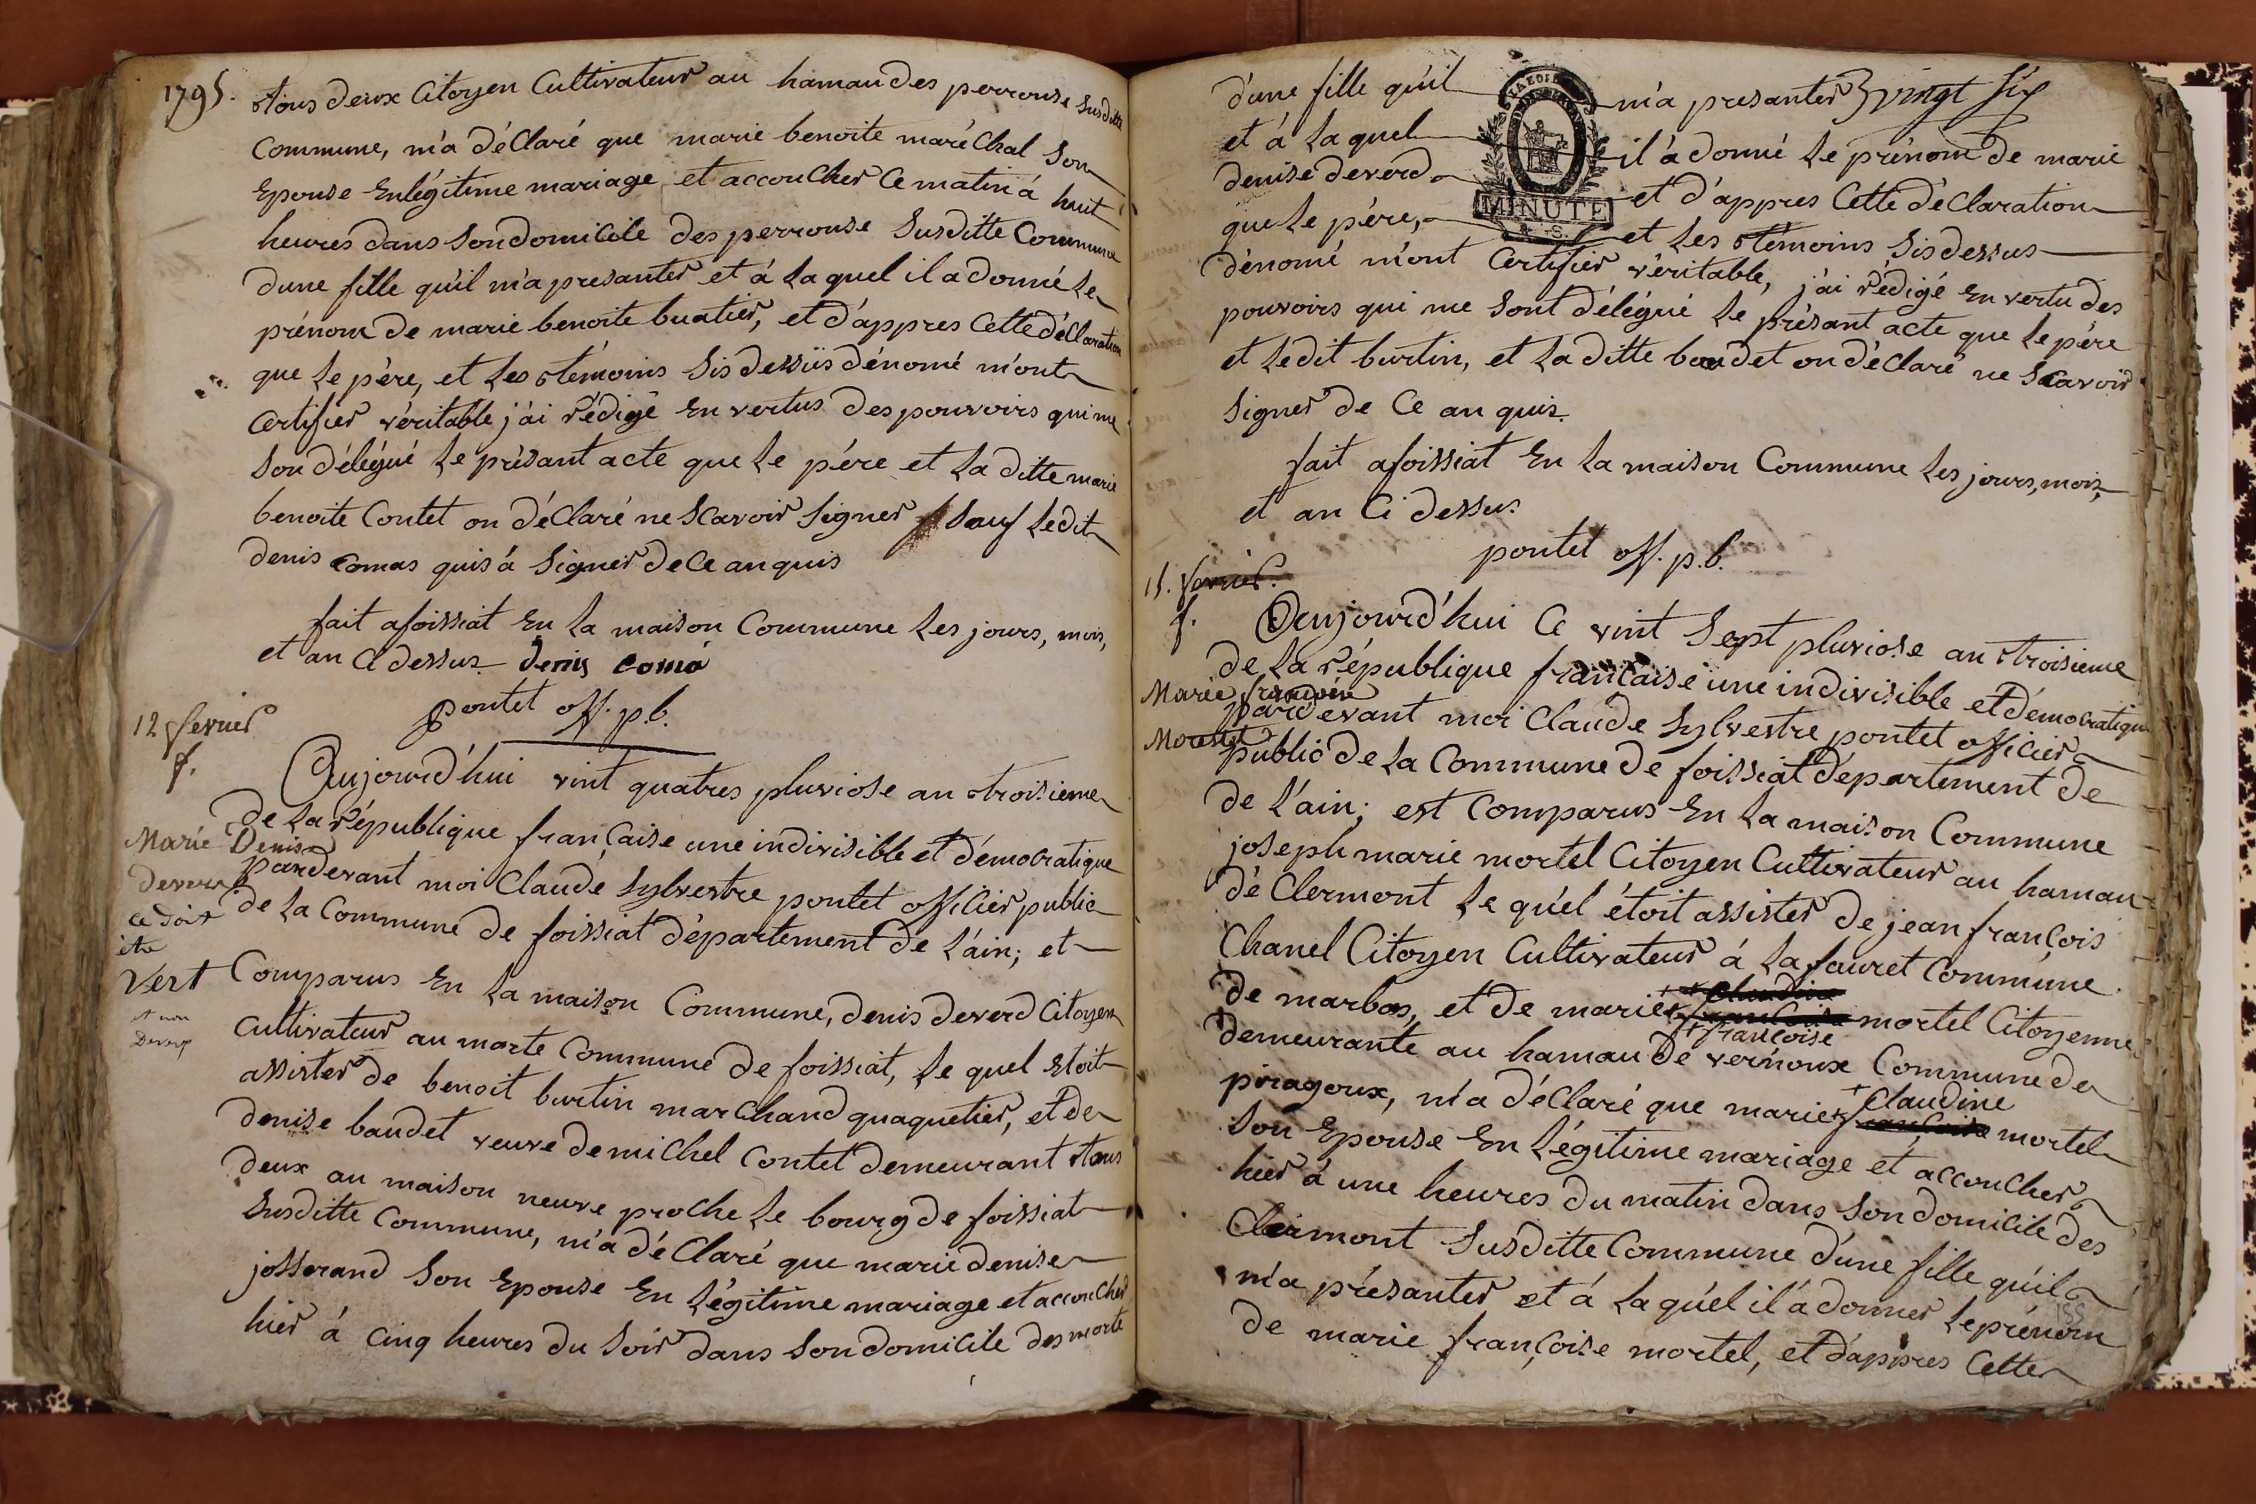 1795.
tous deux Citoyen Cultivateur au hamau des perrouse susditte
Commune, m'a déClaré que marie benoite maréChal Son
Epouse Enlégitime mariage et accoucher Ce matin á huit
heures dans Son domiCile des perrouse Susditte Commune
dune fille qu'il m'a presanter et á La quel il a donné Le
prénom de marie benoite buatier, et d'appres Cette déClaration
que Le pére, et Les témoins Sis dessus dénomé m'ont
Certifier véritable j'ai rédigé En vertus des pouvoirs qui me
Son délégué Le présant acte que Le pére et La ditte marie
benoite Contet on déClaré ne Scavoir Signer Sauf Ledit
denis Comas quis á Signer de Ce an quis
fait afoissiat En La maison Commune Les jours, mois,
et an Ci dessus denis comá
pontet off. p.b.
12 fevrier
f.
Marie Denise
Deverd
ce doit
être
Vert
et non
Aujourd'hui vint quatres pluviose an troisieme
de La république française une indivisible et démocratique
pardevant moi Claude Sylvestre pontet offiCier public
de La Commune de foissiat département de L'ain; et
Comparus En La maison Commune, denis deverd Citoyen
Cultivateur au morte Commune de foissiat, Le quel Etoit
assister de benoit burtin marChand quaquetier, et de
denise baudet veuve de miChel Contet demeurant tous
deux au maison neuve proChe Le bourg de foissiat
Susditte Commune, m'a déClaré que marie denise
josserand Son Epouse En Légitime mariage et accoucher
hier á Cinq heures du Soir dans Son domiCile des morte
d'une fille qu'il m'a presanter vingt six
et á La quel il á donné Le prénom de marie
denise deverd et d'appres Cette déClaration
que Le pére, et Les témoins Sis dessus
MINUTE
dénomé m'ont Certifier véritable, j'ai rédigé En vertu des
pouvoirs qui me Sont délégué Le présant acte que Le pére
et Ledit burtin, et La ditte baudet on déClaré ne Scavoir
Signer de Ce an quis
fait afoissiat En La maison Commune Les jours, mois,
et an Ci dessus
pontet off. p.b.
15. fevrier.
f.
Marie françoise
Mortel
Aujourd'hui Ce vint Sept pluviose an troisieme
de La république française une indivisible et démocratique
pardevant moi Claude Sylvestre pontet offiCier
public de La Commune de foissiat département de
de L'ain; est Comparus En La maison Commune
joseph marie mortel Citoyen Cultivateur au hamau
de Clermont Le quel étoit assister de jean françois
Chanel Citoyen Cultivateur á La fauret Commune
de marbos, et de marie françoise mortel Citoyenne
demeurante au hamau de vernoux Commune de
piragoux, m'a déClaré que marie Claudine mortel
Son Epouse En Légitime mariage et accoucher
hier á une heures du matin dans Son domiCile des
Clermont Susditte Commune d'une fille qu'il
m'a présanter et á La quel il á donner Le prénom
de marie françoise mortel, et d'appres Cette
155